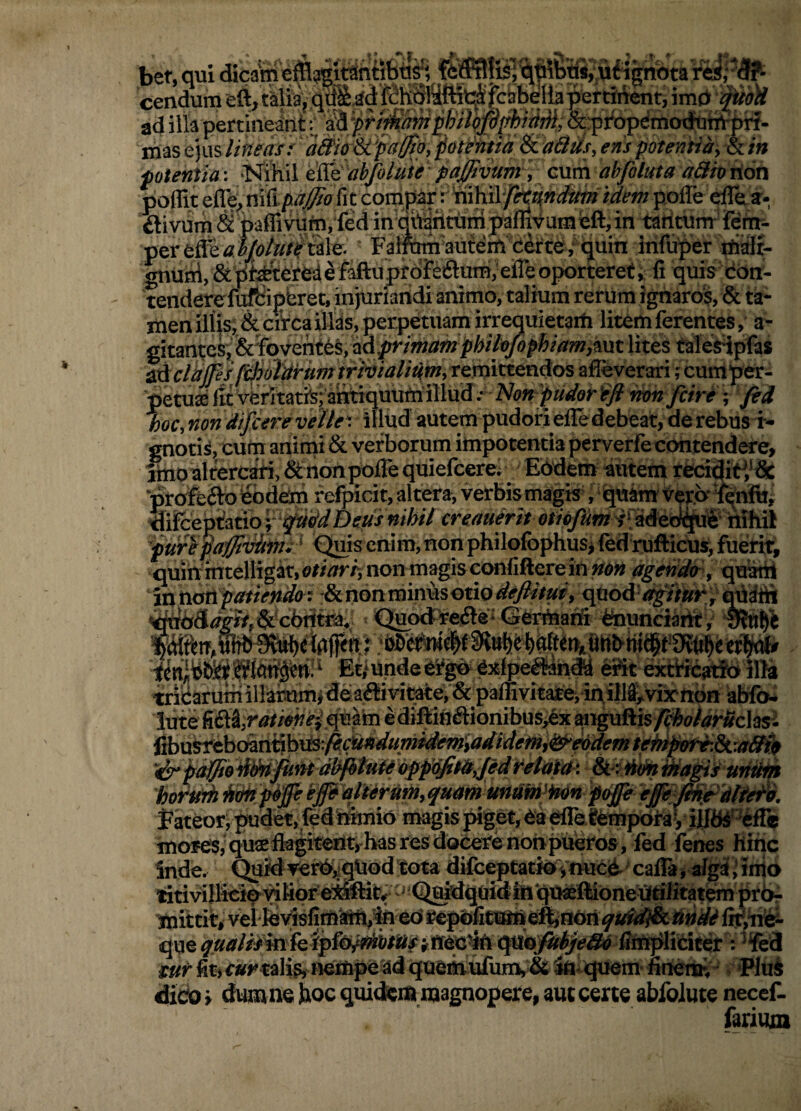 bet, qui dicam efflagitantibus; fessilis, quibus, ut ignota res, di-
cendum est, talia, quæ ad scholastica scabella pertinent, imo quod
ad illa pertineant: ad primam philosophiam, & propemodum pri-
mas ejus lineas: actio & passio, potentia & actus, ens potentiâ, & in
potentia: Nihil esse absolute passivum, cum absoluta actio non
possit esse, nisi passio sit compar: nihil secundum idem posse esse a-
ctivum & passivum, sed in quantum passivum est, in tantum sem-
per esse absolute tale. Falsum autem certe, quin insuper mali-
gnum, & prætereà è fastu profectum, esse oporteret, si quis con-
tendere susciperet, injuriandi animo, talium rerum ignaros, & ta-
men illis, & circa illas, perpetuam irrequietam litem ferentes, a-
gitantes, & foventes, ad primam philosophiam, aut lites tales ipsas
ad classes scholarum trivialium, remittendos asseverari; cum per-
petuæ sit veritatis, antiquum illud: Non pudor est non scire; sed
hoc, non discere velle: illud autem pudori esse debeat, de rebus i-
gnotis, cum animi & verborum impotentia perverse contendere,
imo altercari, & non posse quiescere. Eòdem autem recidit, &
profecto eòdem respicit, altera, verbis magis, quàm verò sensu,
disceptatio; quod Deus nihil creauerit otiosum; adeoque nihil
purè passivum. Quis enim, non philosophus, sed rusticus, fuerit,
quin intelligat, otiari, non magis consistere in non agendo, quàm
in non patiendo: & non minùs otio destitui, quod agitur, quàm
quòd agit, & còntrà. Quod rectè Germani enunciant, Ruhe
halten, und Ruhe lassen; oder nicht Ruhe halten, und nicht Ruhe erhal-
ten, oder erlangen. Et, unde ergò exspectanda erit extricatio illa
tricarum illarum, de activitate, & passivitate, in illâ, vix non abso-
lute fictâ, ratione; quàm è distinctionibus, ex angustis scholarū clas-
sibus reboantibus: secundum idem, ad idem, & eodem tempore: & actio
& passio non sunt absolute opposita, sed relata: & non magis unum
horum non posse esse alterum, quam unum non posse esse sine altero.
Fateor, pudet, sed nimio magis piget, ea esse tempora, illos esse
mores, quæ flagitent, has res docere non pueros, sed senes hinc
inde. Quid verò, quòd tota disceptatio, nuce cassa, algâ, imo
titivillicio vilior existit. Quidquid in quæstione utilitatem pro-
mittit, vel levissimam, in eo repositum est, non quid, & unde sit, ne-
que qualis in se ipso, motus; nec in quo subjecto simpliciter: sed
cur sit, cur talis, nempe ad quem usum, & in quem finem. Plus
dico; dum ne hoc quidem magnopere, aut certe absolute necef-
sarium